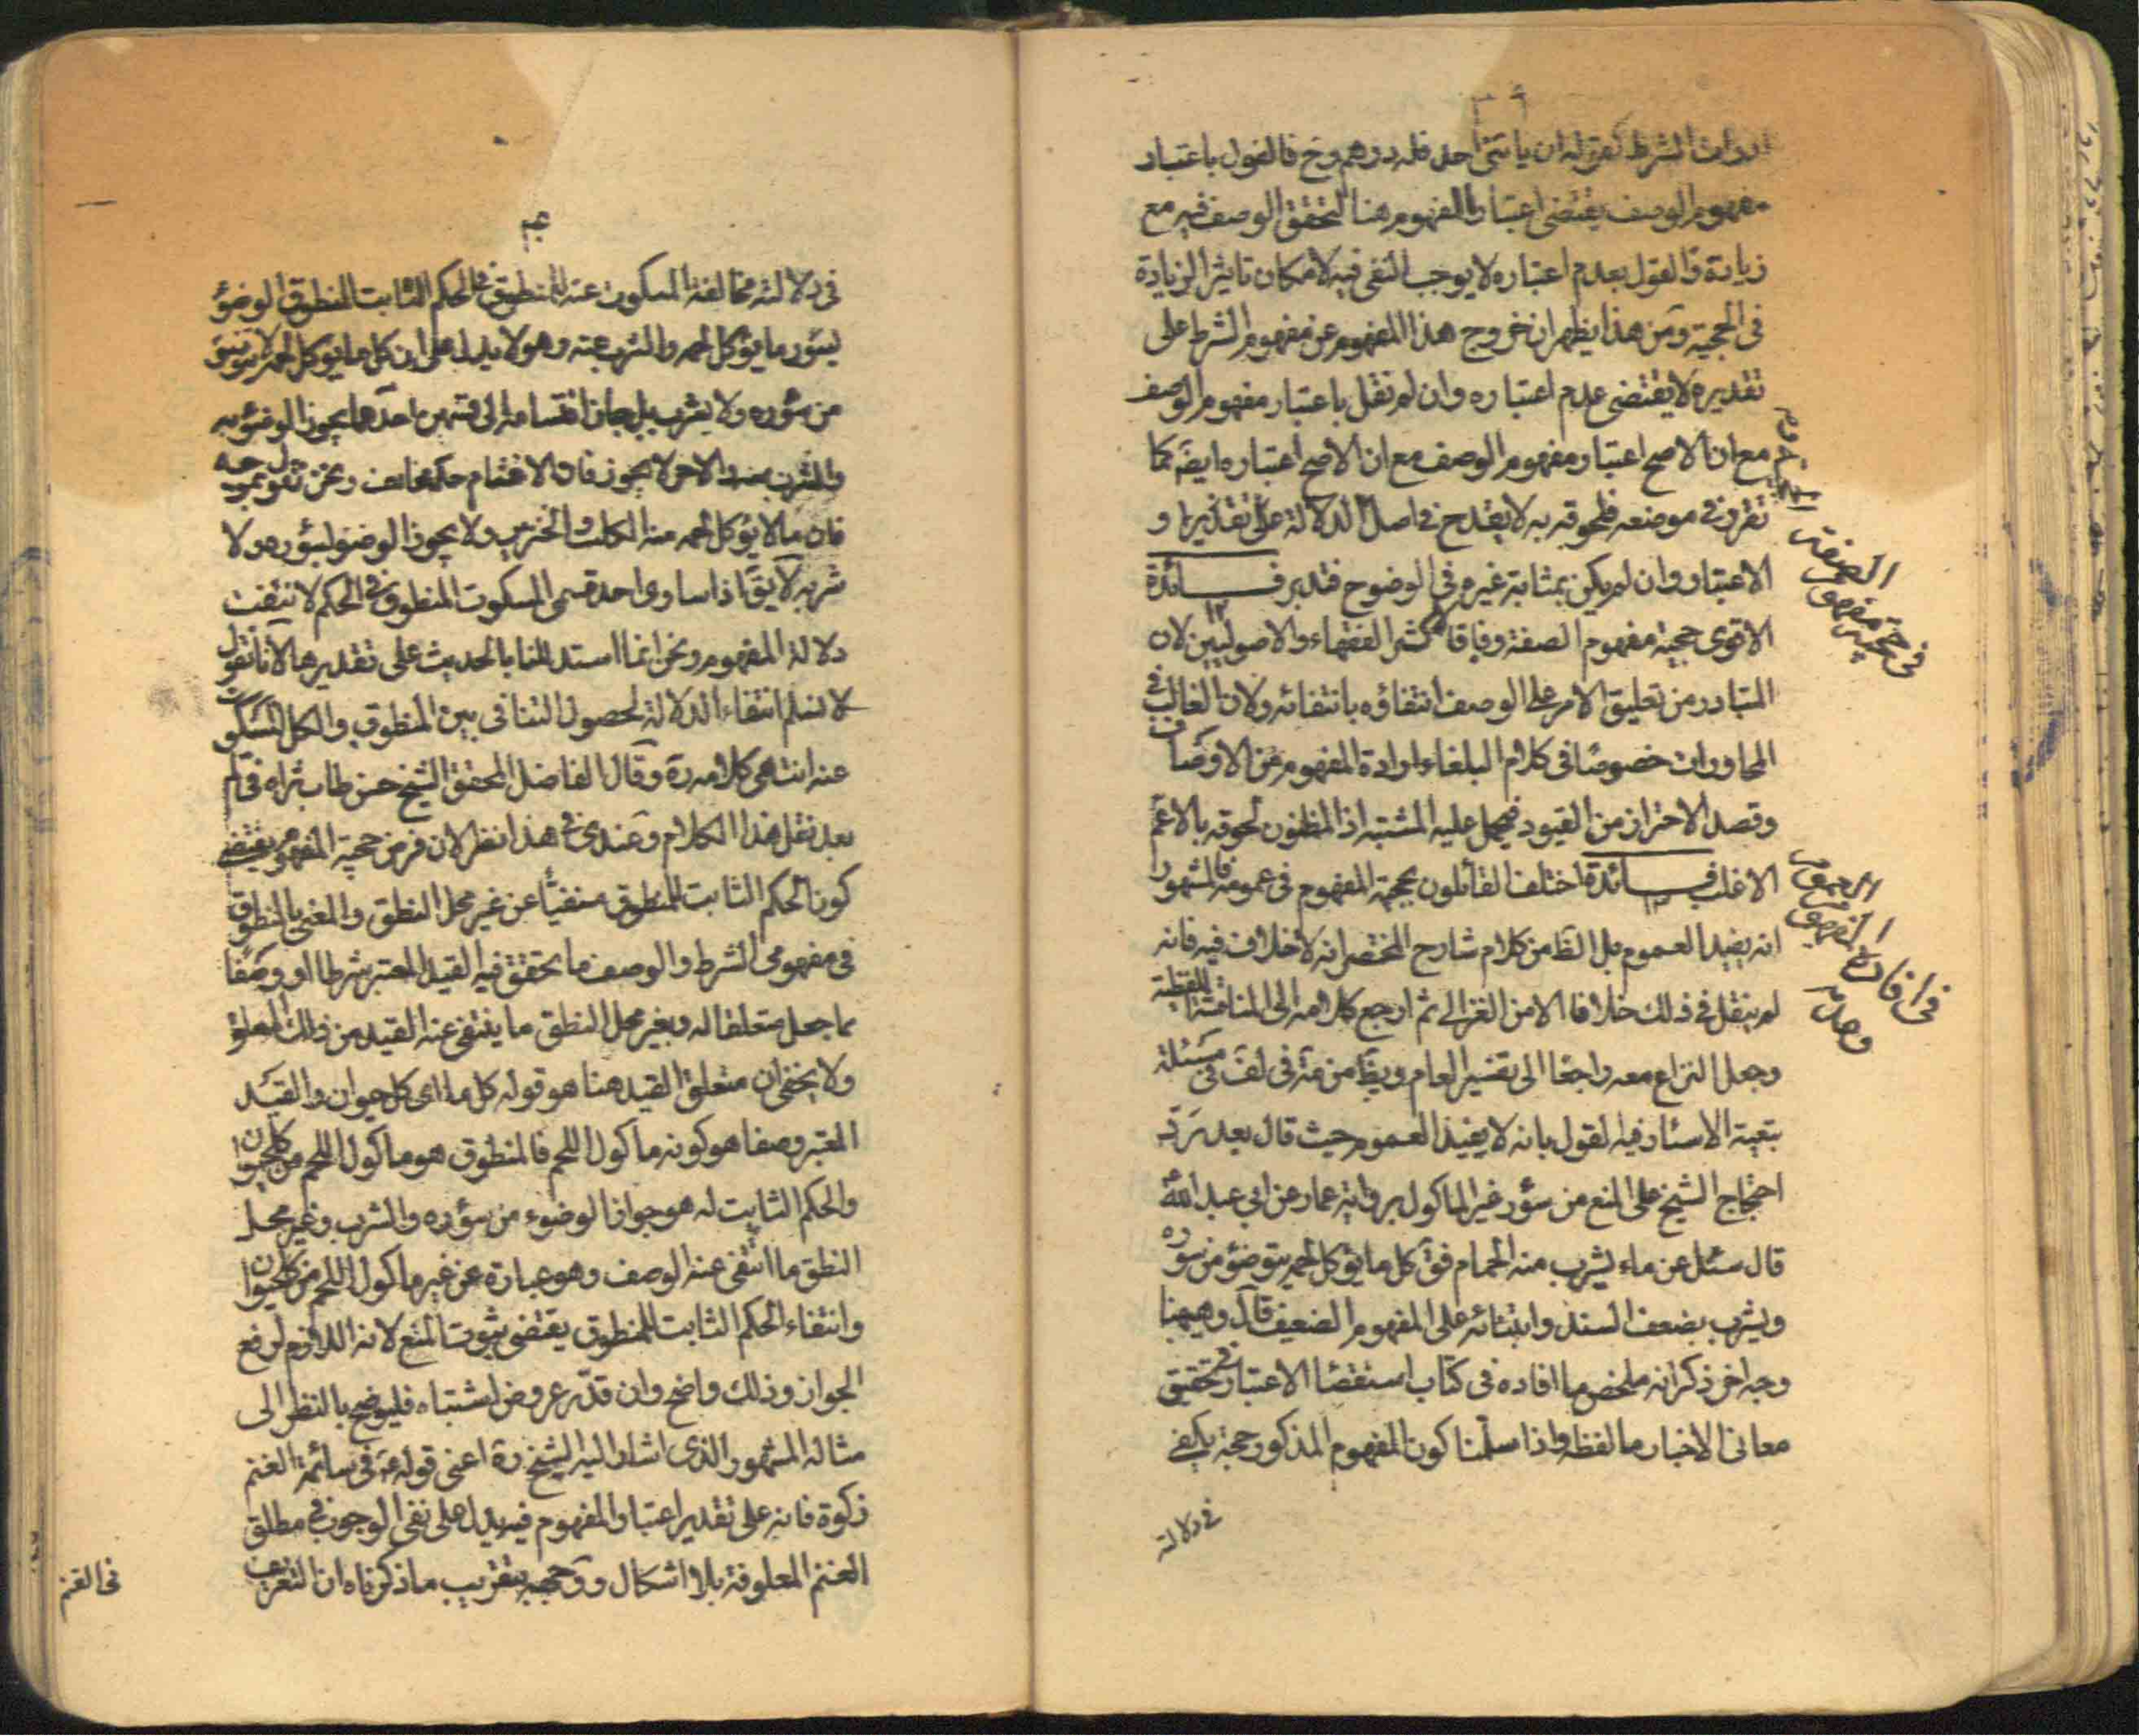 ادوات الشرط كقوله ان ياتنى احد فله درهم وح فالقول باعتبار
مفهوم الوصف يقتضى اعتبار المفهوم هنا لتحقق الوصف فيه مع
زيادة والقول بعدم اعتباره لا يوجب النفى فيه لامكان تاثير الزيادة
فى الحجية ومن هذا يظهر ان خروج هذا المفهوم عن مفهوم الشرط على
تقديره لا يقتضى عدم اعتباره وان لم نقل باعتبار مفهوم الوصف
مع ان الاصح اعتبار مفهوم الوصف مع ان الاصح اعتباره ايضَ كما
تقرر فى موضعه فلحوقه به لا يقدح فى اصل الدلالة على تقديرها و
الاعتبار وان لم يكن بمثابة غيره فى الوضوح فتدبر فــــائدة
الاقوى حجية مفهوم الصفة وفاقا لاكثر الفقهاء والاصوليين لان
المتبادر من تعليق الامر على الوصف انتفاؤه بانتفائه ولان الغالب فى
المحاورات خصوصًا فى كلام البلغاء ارادة المفهوم من الاوصاف
وقصد الاحتراز من القيود فيحمل عليه المشتبه اذ المظنون لحوقه بالاعم
الاغلب فــــائدة اختلف القائلون بحجية المفهوم فى عمومه فالمشهور
انه يفيد العموم بل الظَ من كلام شارح المختصر انه لا خلاف فيه فانه
لم ينقل فى ذلك خلافا الا من الغزالى ثم ارجع كلامه الى المناقشة اللفظية
وجعل النزاع معه راجعًا الى تفسير العام ويظَ من مة فى لف فى مسئلة
بتعية الاسئار فيه القول بانه لا يفيد العموم حيث قال بعد رد
احتجاج الشيخ على المنع من سؤر غير الماكول برواية عمار عن ابى عبد الله
قال سئل عن ماء يشرب منه الحمام فقَ كل ما يؤكل لحمه يتوضؤ من سؤره
ويشرب بضعف السند وابتنائه على المفهوم الضعيف قال وهيهنا
وجه اخر ذكرانه ملخص ما افاده فى كتاب استقصاء الاعتبار فى تحقيق
معانى الاخبار ما لفظه واذا سلمنا كون المفهوم المذكور حجة يكفى
فى دلالته
الصفة
فى حجية مفهوم
فى افادة المفهوم
العموم
وعدمه
فى دلالته مخالفة المسكوت عنه للمنطوق فى الحكم الثابت للمنطوق الوضؤ
بسؤر ما يؤكل لحمه والشرب عنه وهو لا يدل على ان كل ما لا يؤكل لحمه لا يتوضؤ
من سؤره ولا يشرب بل جاز انقسامه الى قسمين احدهما يجوز الوضؤ به
والشرب منه والاخر لا يجوز فان الانقسام حكم مخالف ونحن نقول بموجبه
فان ما لا يؤكل لحمه منه الكلب والخنزير ولا يجوز الوضؤ بسؤره ولا
شربه لا يقَ اذا ساوى احد قسمى المسكوت المنطوق فى الحكم لا نتيفت
دلالة المفهوم ونحن انما استدللنا بالحديث على تقديرها لانا نقول
لا نسلم انتفاء الدلالة لحصول التنافى بين المنطوق والكل المسكوت
عنه انتهى كلامه ره وقال الفاضل المحقق الشيخ حسن طاب ثراه فى لم
بعد نقل هذا الكلام وعندى فى هذا نظر لان فرض حجية المفهوم يقتضى
كون الحكم الثابت للمنطوق منتفيًا عن غير محل النطق والمعنى بالمنطوق
فى مفهومى الشرط والوصف ما تحقق فيه القيد المعتبر شرطا او وصفًا
مما جعل متعلقا له وبغير محل النطق ما ينتفى عنه القيد من ذلك المتعلق
ولا يخفى ان متعلق القيد هنا هو قوله كل ما اى كل حيوان والقيد
المعتبر وصفا هو كونه ماكول اللحم فالمنطوق هو ماكول اللحم من كل حيوان
والحكم الثابت له هو جواز الوضوء من سؤره والشرب وغير محل
النطق ما انتفى عنه الوصف وهو عبارة عن غير ماكول اللحم من كل حيوان
وانتفاء الحكم الثابت للمنطوق يقتضى ثبوت المنع لانه اللازم لرفع
الجواز وذلك واضح وان قدر عروض اشتباه فليوضح بالنظر الى
مثاله المشهور الذى اشار اليه الشيخ ره اعنى قوله عَ فى سائمة الغنم
زكوة فانه على تقدير اعتبار المفهوم فيه يدل على نفى الوجوب فى مطلق
الغنم المعلوفة بلا اشكال ووجهه بتقريب ما ذكرناه ان التعريف
فى الغنم